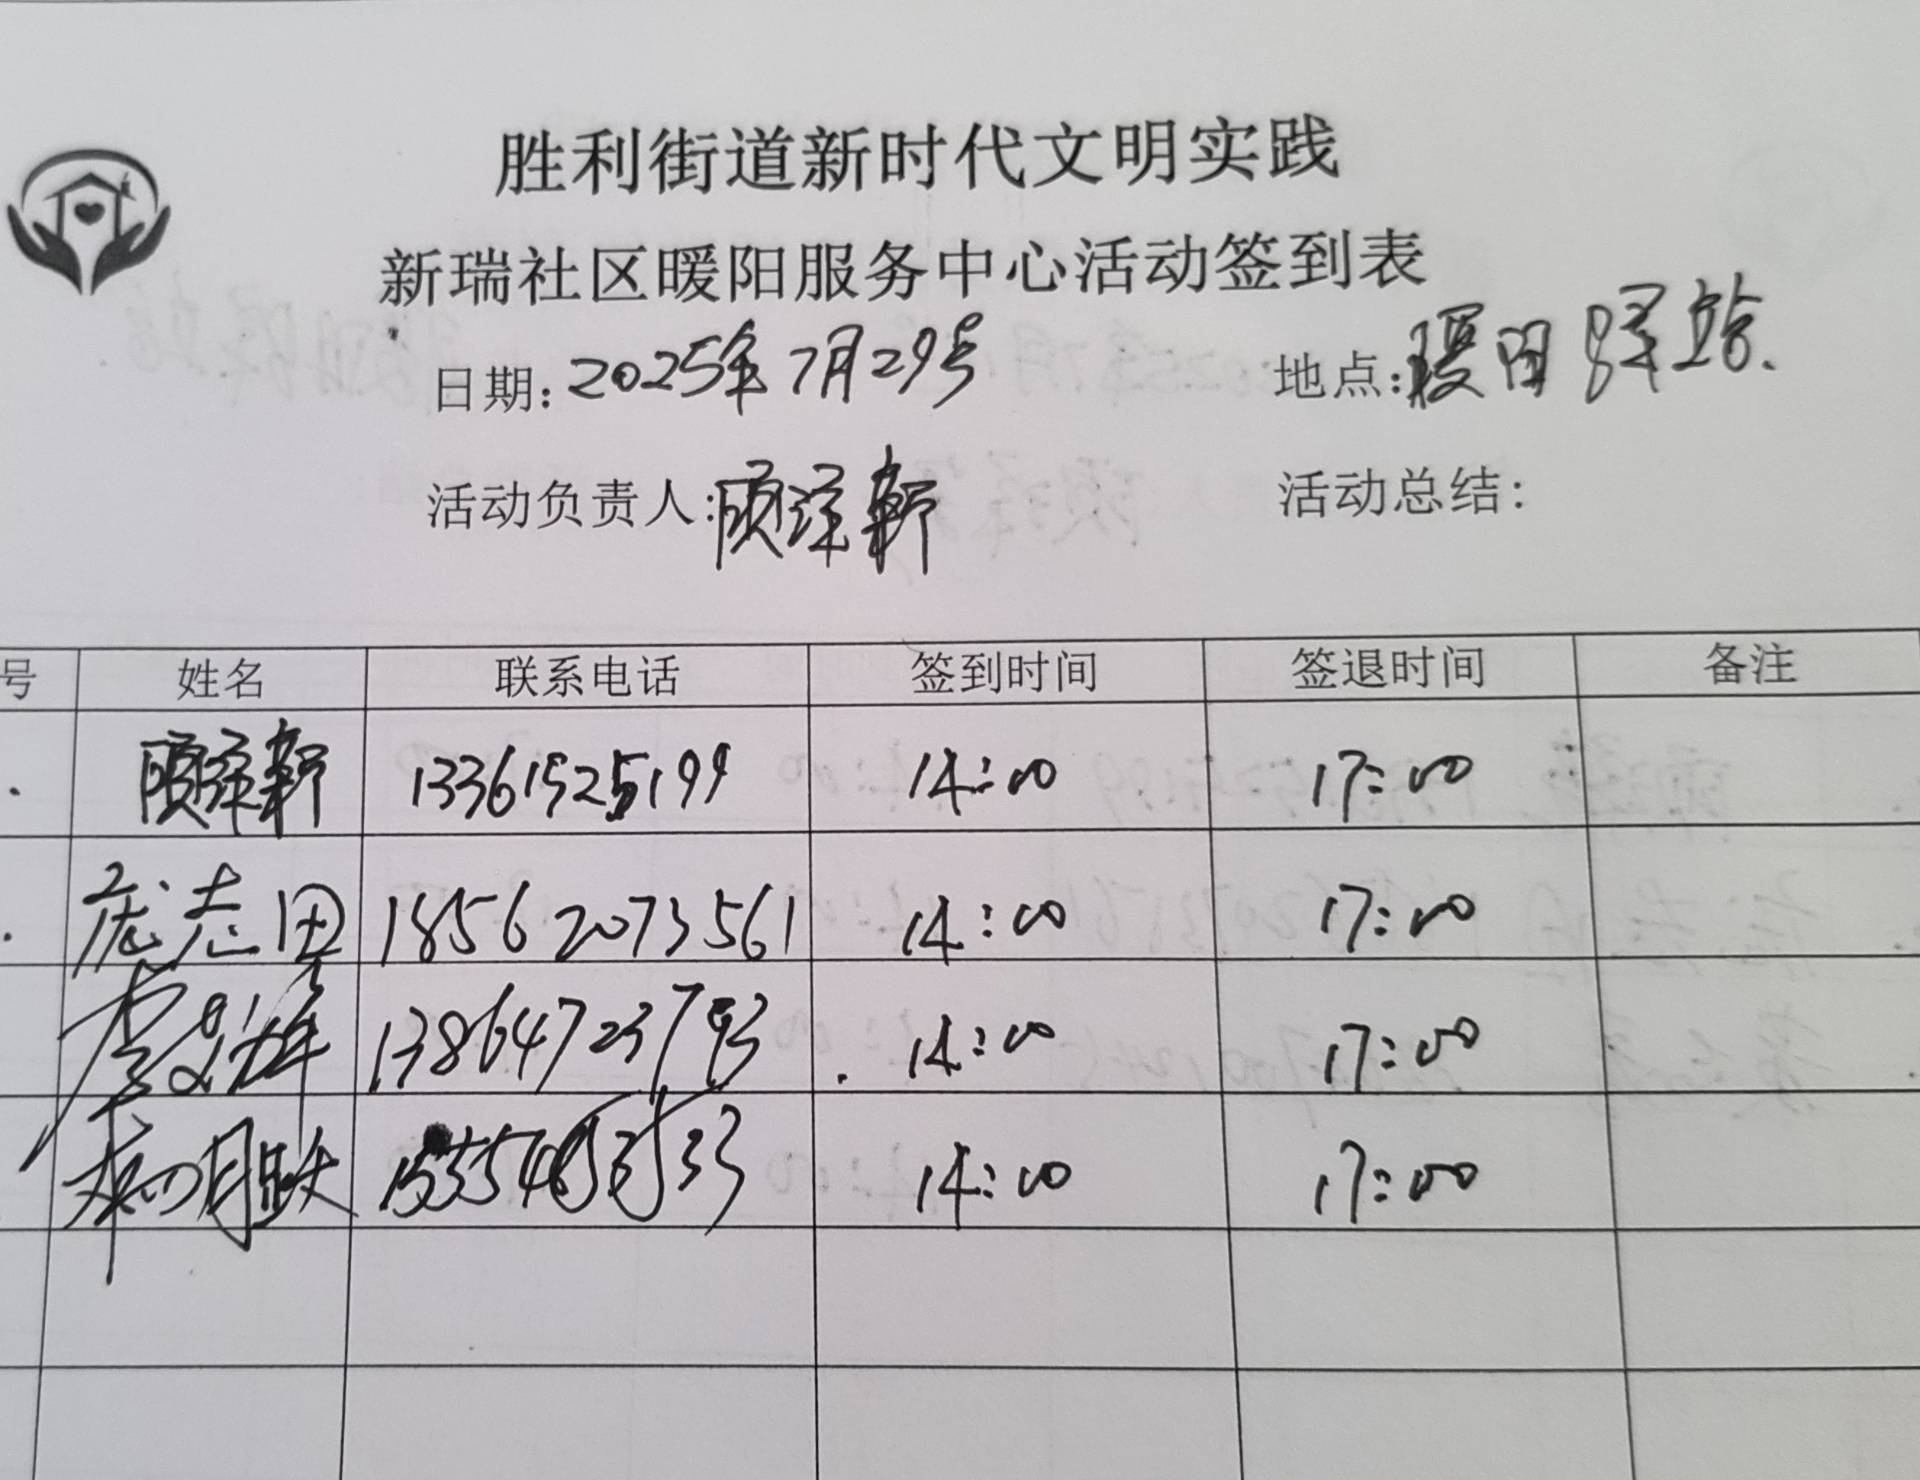 胜利街道新时代文明实践
新瑞社区暖阳服务中心活动签到表
日期：2025年7月29号 地点：暖阳驿站.
活动负责人：顾泽轩 活动总结：
号 姓名 联系电话 签到时间 签退时间 备注
顾泽轩 13361525199 14:00 17:00
庞志国 18562073561 14:00 17:00
13864723793 14:00 17:00
14:00 17:00